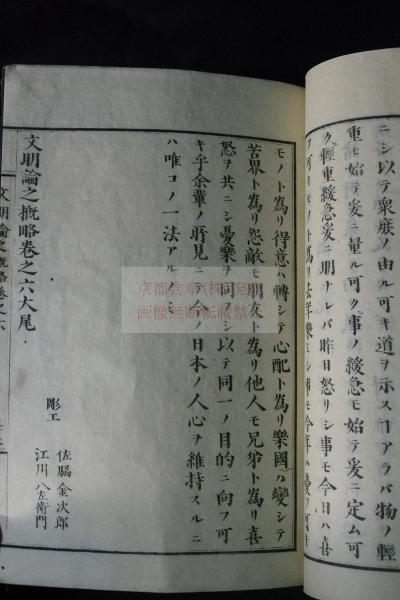 ニシ以テ衆庶ノ由ル可キ道ヲ示スヿアラバ物ノ輕
重モ始テ爰ニ量ル可ク事ノ緩急モ始テ爰ニ定ム可
ク輕重緩急爰ニ明ナレバ昨日怒リシ事モ今日ハ喜
フ可キモノト爲リ去年樂ミシ事モ今年ハ憂フ可キ
モノト爲リ得意ハ轉シテ心配ト爲リ樂國ハ變シテ
苦界ト爲リ怨敵モ朋友ト爲リ他人モ兄弟ト爲リ喜
怒ヲ共ニシ憂樂ヲ同フシ以テ同一ノ目的ニ向フ可
キ乎余輩ノ所見ニテ今ノ日本ノ人心ヲ維持スルニ
ハ唯コノ一法アルノミ
文明論之概略卷之六大尾
彫工
佐脇金次郎
江川八左衛門
文明論之概略卷之六
京都含章(株)発朋
画像無断転載禁